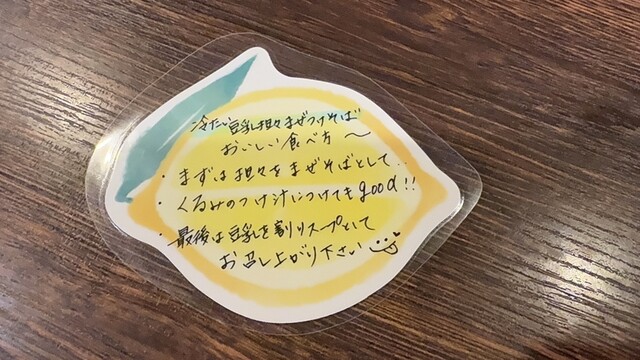 冷たい豆乳担々まぜつけそば
おいしい食べ方〜
・まずは担々をまぜそばとして..
・くるみのつけ汁につけてもgood!!
・最後は豆乳を割りスープとして
お召し上がり下さい